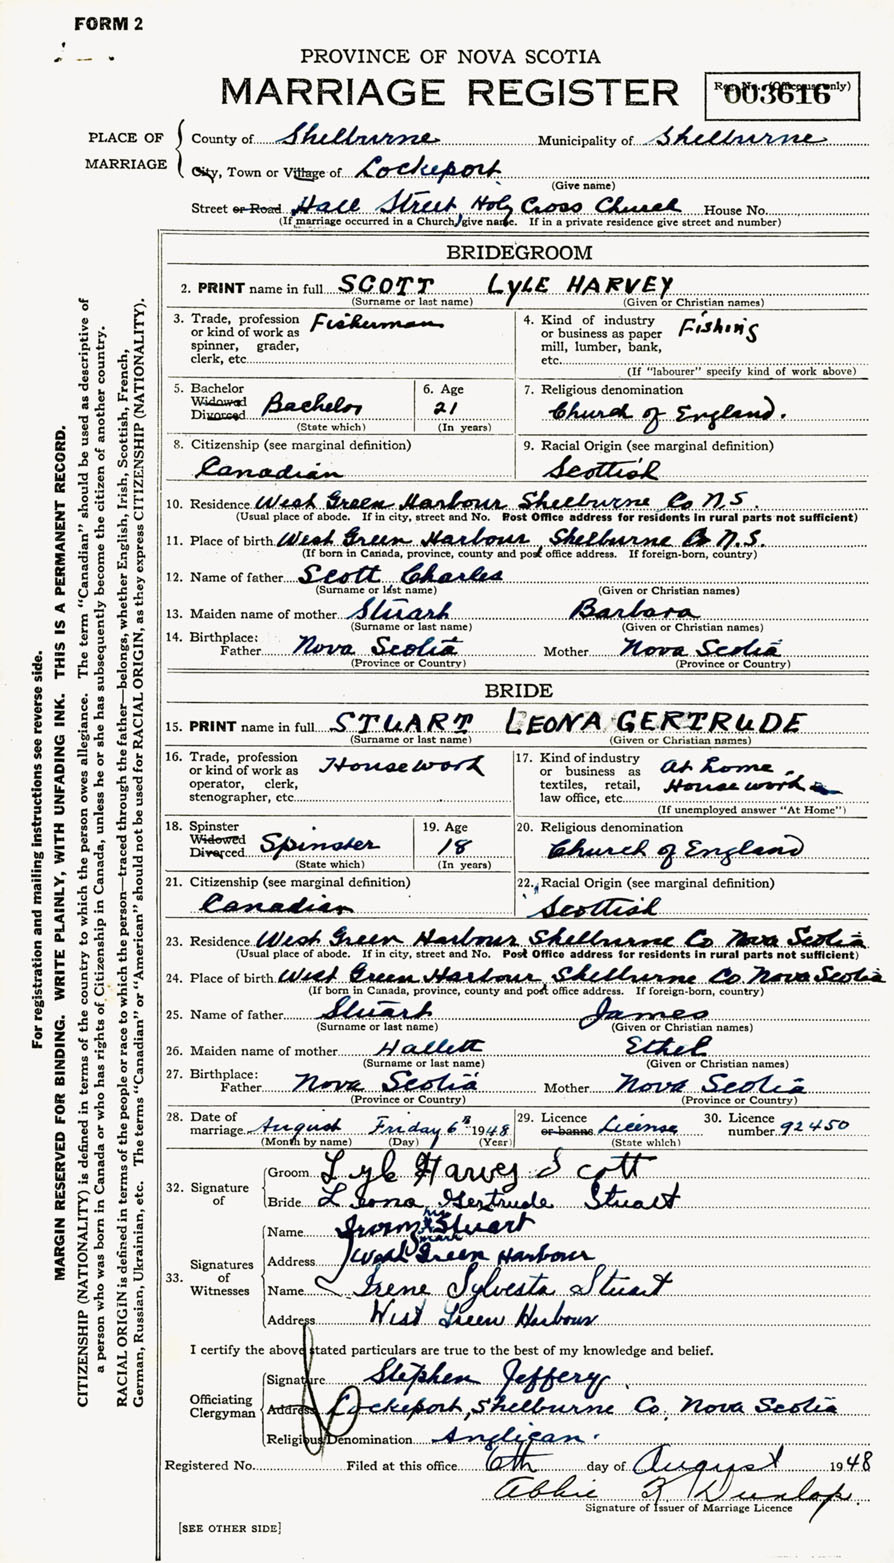 FORM 2
PROVINCE OF NOVA SCOTIA
MARRIAGE REGISTER
Reg. No. (Office use only)
003616
PLACE OF MARRIAGE
County of Shelburne Municipality of Shelburne
City, Town or Village of Lockeport
(Give name)
Street or Road Hall Street Holy Cross Church House No.
(If marriage occurred in a Church, give name. If in a private residence give street and number)
BRIDEGROOM
2. PRINT name in full SCOTT LYLE HARVEY
(Surname or last name) (Given or Christian names)
3. Trade, profession or kind of work as spinner, grader, clerk, etc. Fisherman
4. Kind of industry or business as paper mill, lumber, bank, etc. Fishing
(If "labourer" specify kind of work above)
5. Bachelor Widowed Divorced Bachelor
(State which)
6. Age 21
(In years)
7. Religious denomination
Church of England.
8. Citizenship (see marginal definition)
Canadian
9. Racial Origin (see marginal definition)
Scottish
10. Residence West Green Harbour Shelburne Co N.S.
(Usual place of abode. If in city, street and No. Post Office address for residents in rural parts not sufficient)
11. Place of birth West Green Harbour Shelburne Co N.S.
(If born in Canada, province, county and post office address. If foreign-born, country)
12. Name of father Scott Charles
(Surname or last name) (Given or Christian names)
13. Maiden name of mother Stuart Barbara
(Surname or last name) (Given or Christian names)
14. Birthplace:
Father Nova Scotia Mother Nova Scotia
(Province or Country) (Province or Country)
BRIDE
15. PRINT name in full STUART LEONA GERTRUDE
(Surname or last name) (Given or Christian names)
16. Trade, profession or kind of work as operator, clerk, stenographer, etc. Housework
17. Kind of industry or business as textiles, retail, law office, etc. At home. Housework
(If unemployed answer "At Home")
18. Spinster Widowed Divorced Spinster
(State which)
19. Age 18
(In years)
20. Religious denomination
Church of England
21. Citizenship (see marginal definition)
Canadian
22. Racial Origin (see marginal definition)
Scottish
23. Residence West Green Harbour Shelburne Co Nova Scotia
(Usual place of abode. If in city, street and No. Post Office address for residents in rural parts not sufficient)
24. Place of birth West Green Harbour, Shelburne Co Nova Scotia
(If born in Canada, province, county and post office address. If foreign-born, country)
25. Name of father Stuart James
(Surname or last name) (Given or Christian names)
26. Maiden name of mother Hallett Ethel
(Surname or last name) (Given or Christian names)
27. Birthplace:
Father Nova Scotia Mother Nova Scotia
(Province or Country) (Province or Country)
28. Date of marriage August Friday 6th 1948
(Month by name) (Day) (Year)
29. Licence or banns License
(State which)
30. Licence number 92450
32. Signature of
Groom Lyle Harvey Scott
Bride Leona Gertrude Stuart
33. Signatures of Witnesses
Name Stuart
Address West Green Harbour
Name Irene Sylvesta Stuart
Address West Green Harbour
I certify the above stated particulars are true to the best of my knowledge and belief.
Officiating Clergyman
Signature Stephen Jeffery
Address Lockeport, Shelburne Co, Nova Scotia
Religious Denomination Anglican.
Registered No. Filed at this office 6th day of August 1948
Abbie Dunlop
Signature of Issuer of Marriage Licence
[SEE OTHER SIDE]
For registration and mailing instructions see reverse side.
MARGIN RESERVED FOR BINDING. WRITE PLAINLY, WITH UNFADING INK. THIS IS A PERMANENT RECORD.
CITIZENSHIP (NATIONALITY) is defined in terms of the country to which the person owes allegiance. The term "Canadian" should be used as descriptive of
a person who was born in Canada or who has rights of Citizenship in Canada, unless he or she has subsequently become the citizen of another country.
RACIAL ORIGIN is defined in terms of the people or race to which the person—traced through the father—belongs, whether English, Irish, Scottish, French,
German, Russian, Ukrainian, etc. The terms "Canadian" or "American" should not be used for RACIAL ORIGIN, as they express CITIZENSHIP (NATIONALITY).